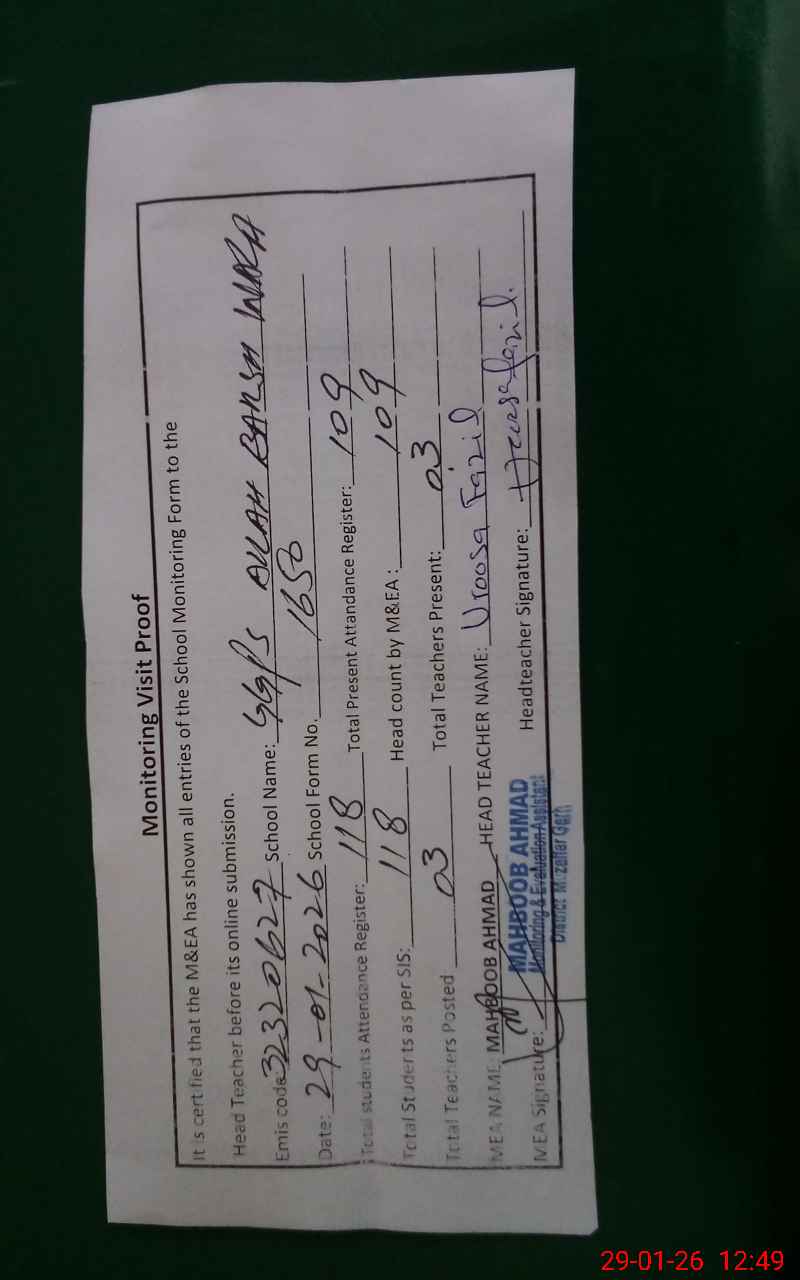 Monitoring Visit Proof
It is certified that the M&EA has shown all entries of the School Monitoring Form to the
Head Teacher before its online submission.
Emis code: 32320627 School Name: GGPS ALLAH BAKSH WARA
Date: 29-01-2026 School Form No. 1650
Total students Attendance Register: 118 Total Present Attandance Register: 109
Total Students as per SIS: 118 Head count by M&EA: 109
Total Teachers Posted 03 Total Teachers Present: 03
MEA NAME: MAHBOOB AHMAD HEAD TEACHER NAME: Uroosa Fazil
MEA Signature: Headteacher Signature: Uroosa fazil.
MAHBOOB AHMAD
Monitoring & Evaluation Assistant
District Muzaffar Garh
29-01-26 12:49